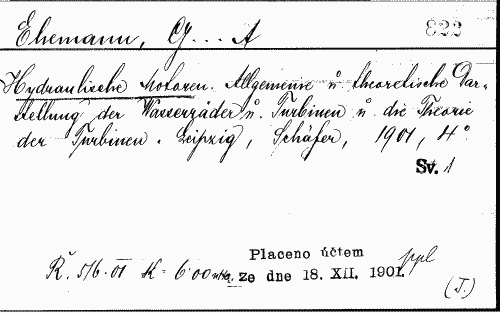 Ehemann, G... A 822
Hydraulische Motoren. Allgemeine u theoretische Dar-
stellung der Wasserräder u. Turbinen u. die Theorie
der Turbinen. Leipzig, Schäfer, 1901, 4°
Sv. 1
Placeno účtem ppl
Ř. 5/6 - 01 K - 6·00 ze dne 18. XII. 1901.
(J.)